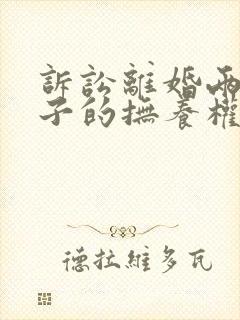 訴訟離婚兩
子的撫養權
德拉維多瓦